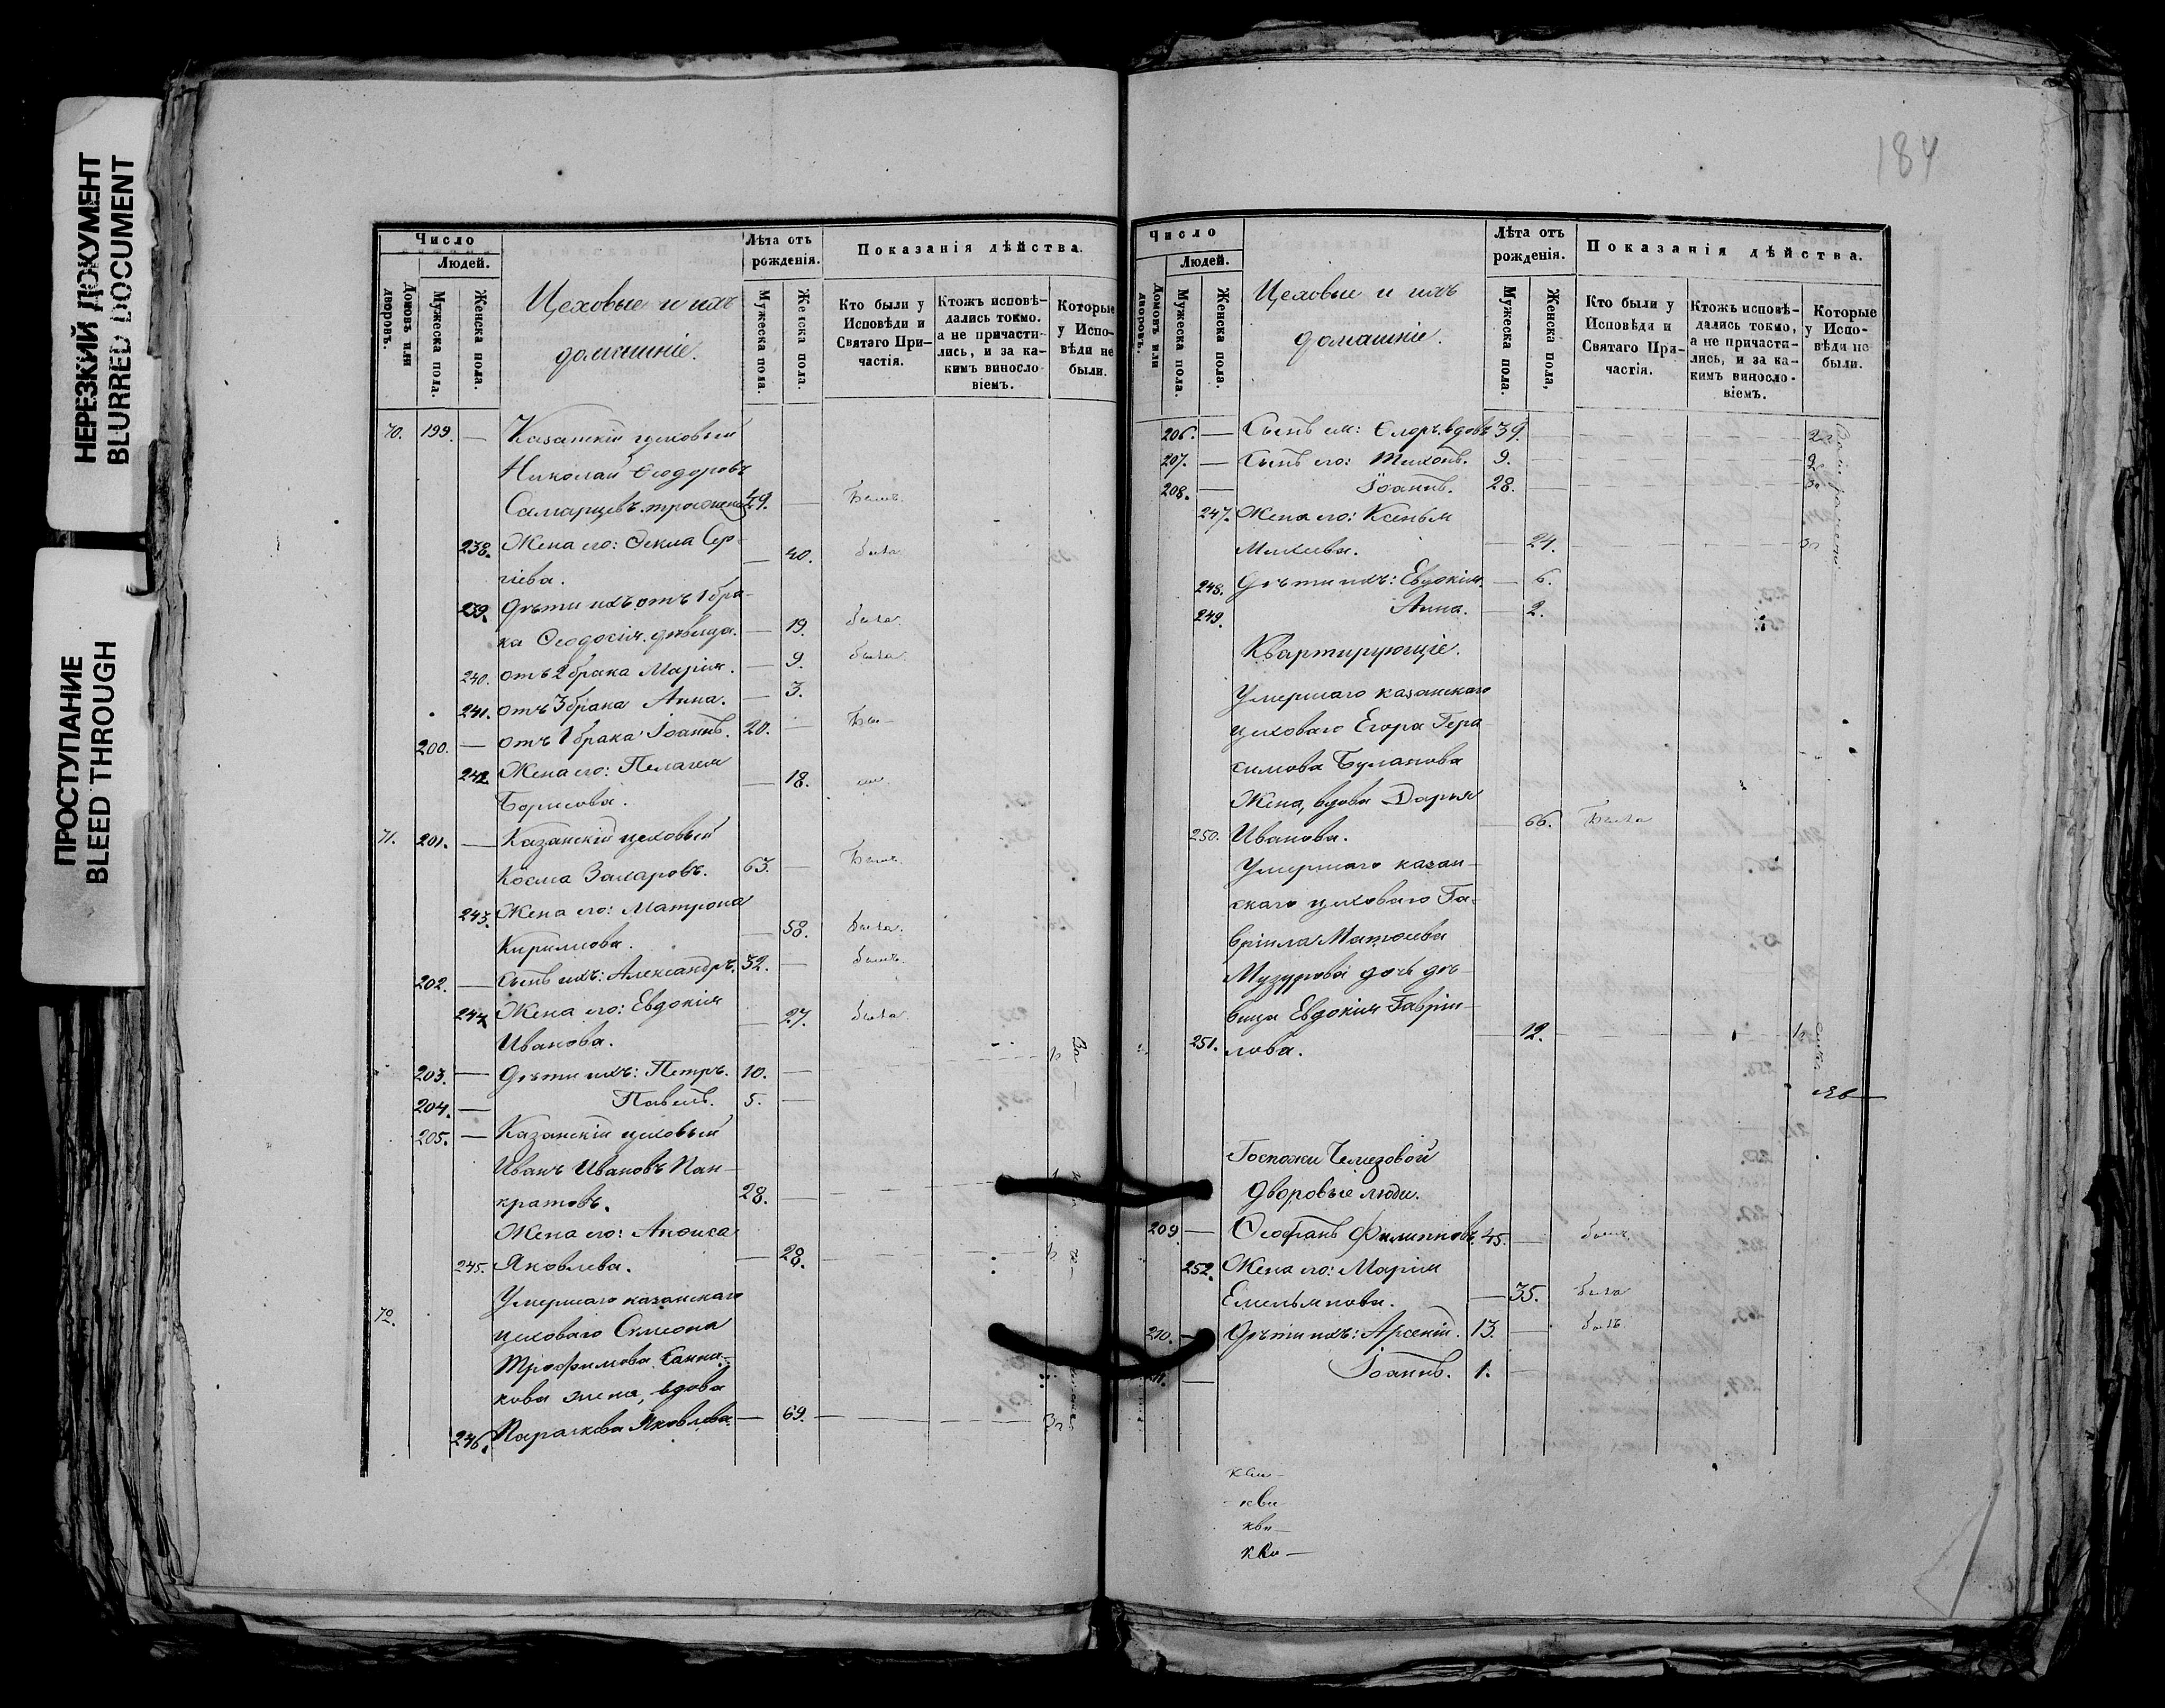 НЕРЕЗКИЙ ДОКУМЕНТ
BLURRED DOCUMENT
ПРОСТУПАНИЕ
BLEED THROUGH
Число
Людей.
Домовъ или дворовъ.
Мужеска пола.
Женска пола.
Цеховые и ихъ
домашніе.
Лѣта отъ рожденія.
Мужеска пола.
Женска пола.
Показанія дѣйства.
Кто были у Исповѣди и Святаго Причастія.
Ктожъ исповѣдались токмо, а не причастились, и за какимъ винословіемъ.
Которые у Исповѣди не были.
70. 199. — Казанскій цеховый
Николай Ѳеодоровъ
Самарцевъ 49. — Былъ.
238. Жена его: Ѳекла Сер-
гіева. — 40. была
239. Дѣти ихъ отъ 1 бра-
ка Ѳеодосія, дѣвица. — 19. была.
240. отъ 2 брака Марія. — 9. была.
241. отъ 3 брака Анна. — 3.
200. — отъ 1 брака Іоаннъ. 20. —
242 Жена его: Пелагея
Борисова. — 18.
71. 201. — Казанскій цеховый
Косма Захаровъ. 63. — Былъ.
243. Жена его: Матрона
Кирилова. — 58. была.
202. — Сынъ ихъ: Александръ. 32. — былъ.
244 Жена его: Евдокія
Иванова. — 27. была
203. — Дѣти ихъ: Петръ. 10. —
204. — Павелъ. 5. —
205. — Казанскій цеховый
Иванъ Ивановъ Пан-
кратовъ. 28. —
Жена его: Анфиса
245. Яковлева. — 28.
72. Умершаго казанскаго
цеховаго Симеона
Трофимова
кова жена, вдова
246. Параскева Яковлева — 69.
184
Число
Людей.
Домовъ или дворовъ.
Мужеска пола.
Женска пола.
Цеховые и ихъ
домашніе.
Лѣта отъ рожденія.
Мужеска пола.
Женска пола,
Показанія дѣйства.
Кто были у Исповѣди и Святаго Причастія.
Ктожъ исповѣдались токмо, а не причастились, и за какимъ винословіемъ.
Которые у Исповѣди не были.
206. — Сынъ ея: вдовъ 39.
207. — Сынъ его: Тихонъ. 9.
208. — Іоаннъ. 28.
247. Жена его: Ксенья
Михеева. — 24.
248. Дѣти ихъ: Евдокія — 6.
249. Анна. — 2.
Квартирующіе.
Умершаго казанскаго
цеховаго Егора Гера
симова Буланова
Жена, вдова Дарья
250. Иванова. — 66. Была
Умершаго казан-
скаго цеховаго Га-
вріила Матѳеева
дочь дѣ-
вица Евдокія Гаврі-
251. лова. — 12.
Госпожи Чемезовой
дворовые люди.
209 — Ѳеофанъ Филипповъ. 45. — былъ
252. Жена его: Марія
Емельянова. — 35. была
210. — Дѣти ихъ: Арсеній. 13. — былъ
— Іоаннъ. 1. —